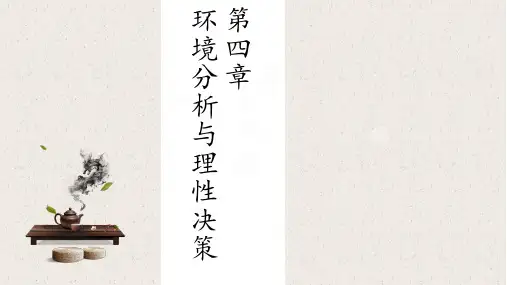 第四章
环境分析与理性决策